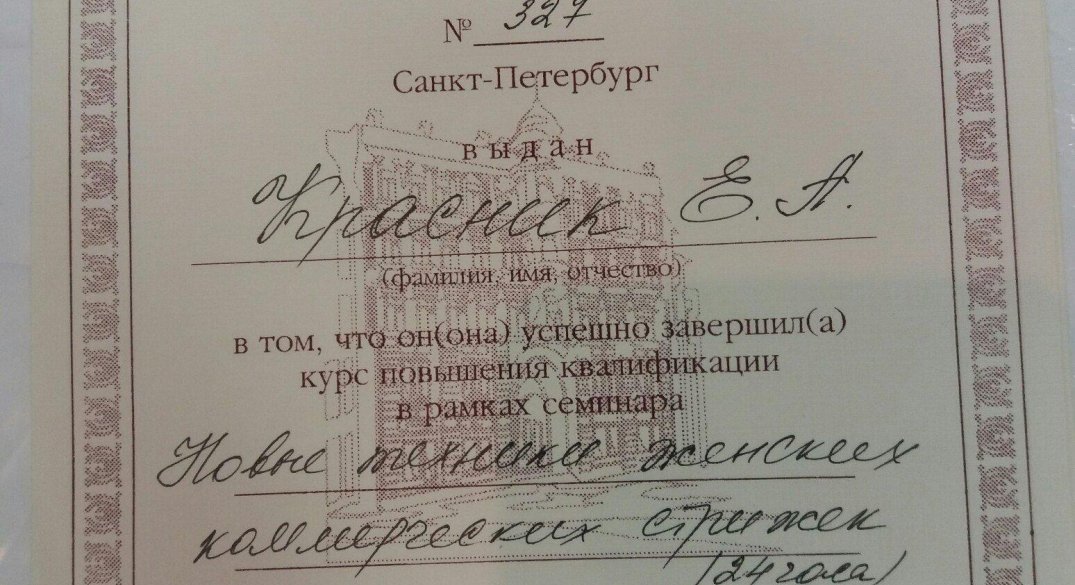 № 327
Санкт-Петербург
выдан
Красник Е. А.
(фамилия, имя, отчество)
в том, что он(она) успешно завершил(а)
курс повышения квалификации
в рамках семинара
Новые техники женских
коммерческих стрижек
(24 часа)